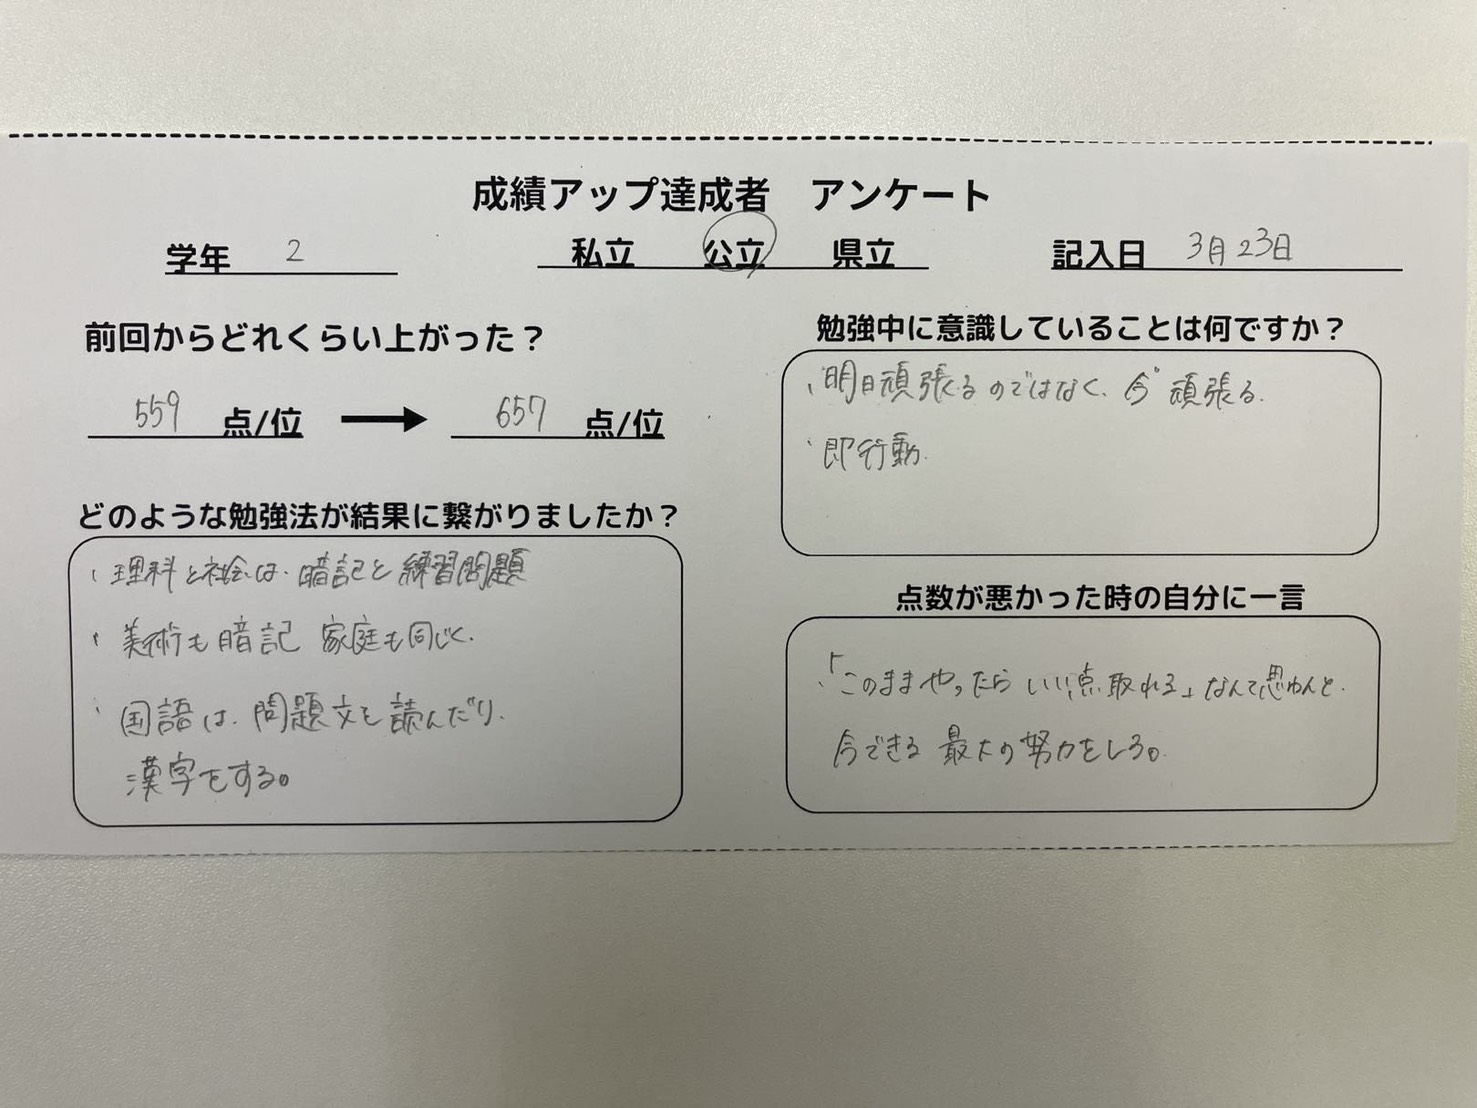 成績アップ達成者 アンケート
学年 2 私立 公立 県立 記入日 3月23日
前回からどれくらい上がった？
559 点/位 → 657 点/位
どのような勉強法が結果に繋がりましたか？
・理科と社会は、暗記と練習問題
・美術も暗記 家庭も同じく。
・国語は、問題文を読んだり、
漢字をする。
勉強中に意識していることは何ですか？
・"明日頑張るのではなく、今"頑張る。
・即行動。
点数が悪かった時の自分に一言
・「このままやったらいい点取れる」なんて思わんと、
今できる最大の努力をしろ。